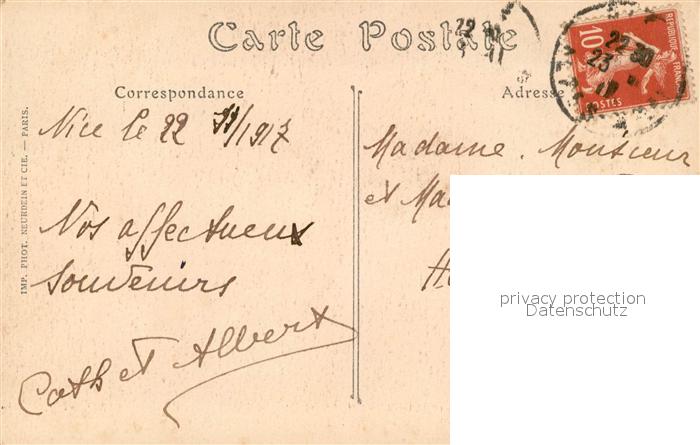 Carte Postale
Correspondance
Adresse
IMP. PHOT. NEURDEIN ET CIE. — PARIS.
REPUBLIQUE FRANÇAISE
10
POSTES
22 30
23
Nice le 22 11/1917
Nos affectueux
souvenirs
Cath et Albert
Madame. Monsieur
et
privacy protection
Datenschutz